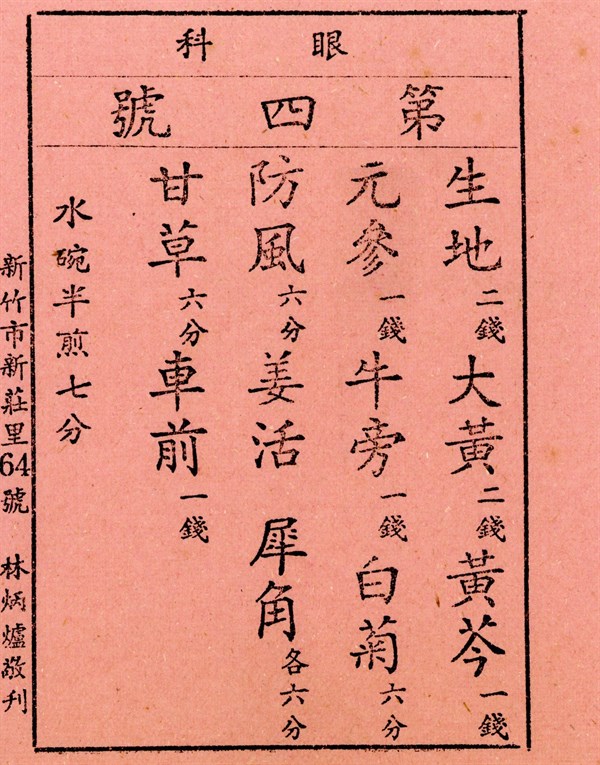 眼科
第四號
生地二錢大黃二錢黃芩一錢
元參一錢牛旁一錢白菊六分
防風六分姜活 犀角各六分
甘草六分車前一錢
水碗半煎七分
新竹市新莊里64號 林炳爐敬刋